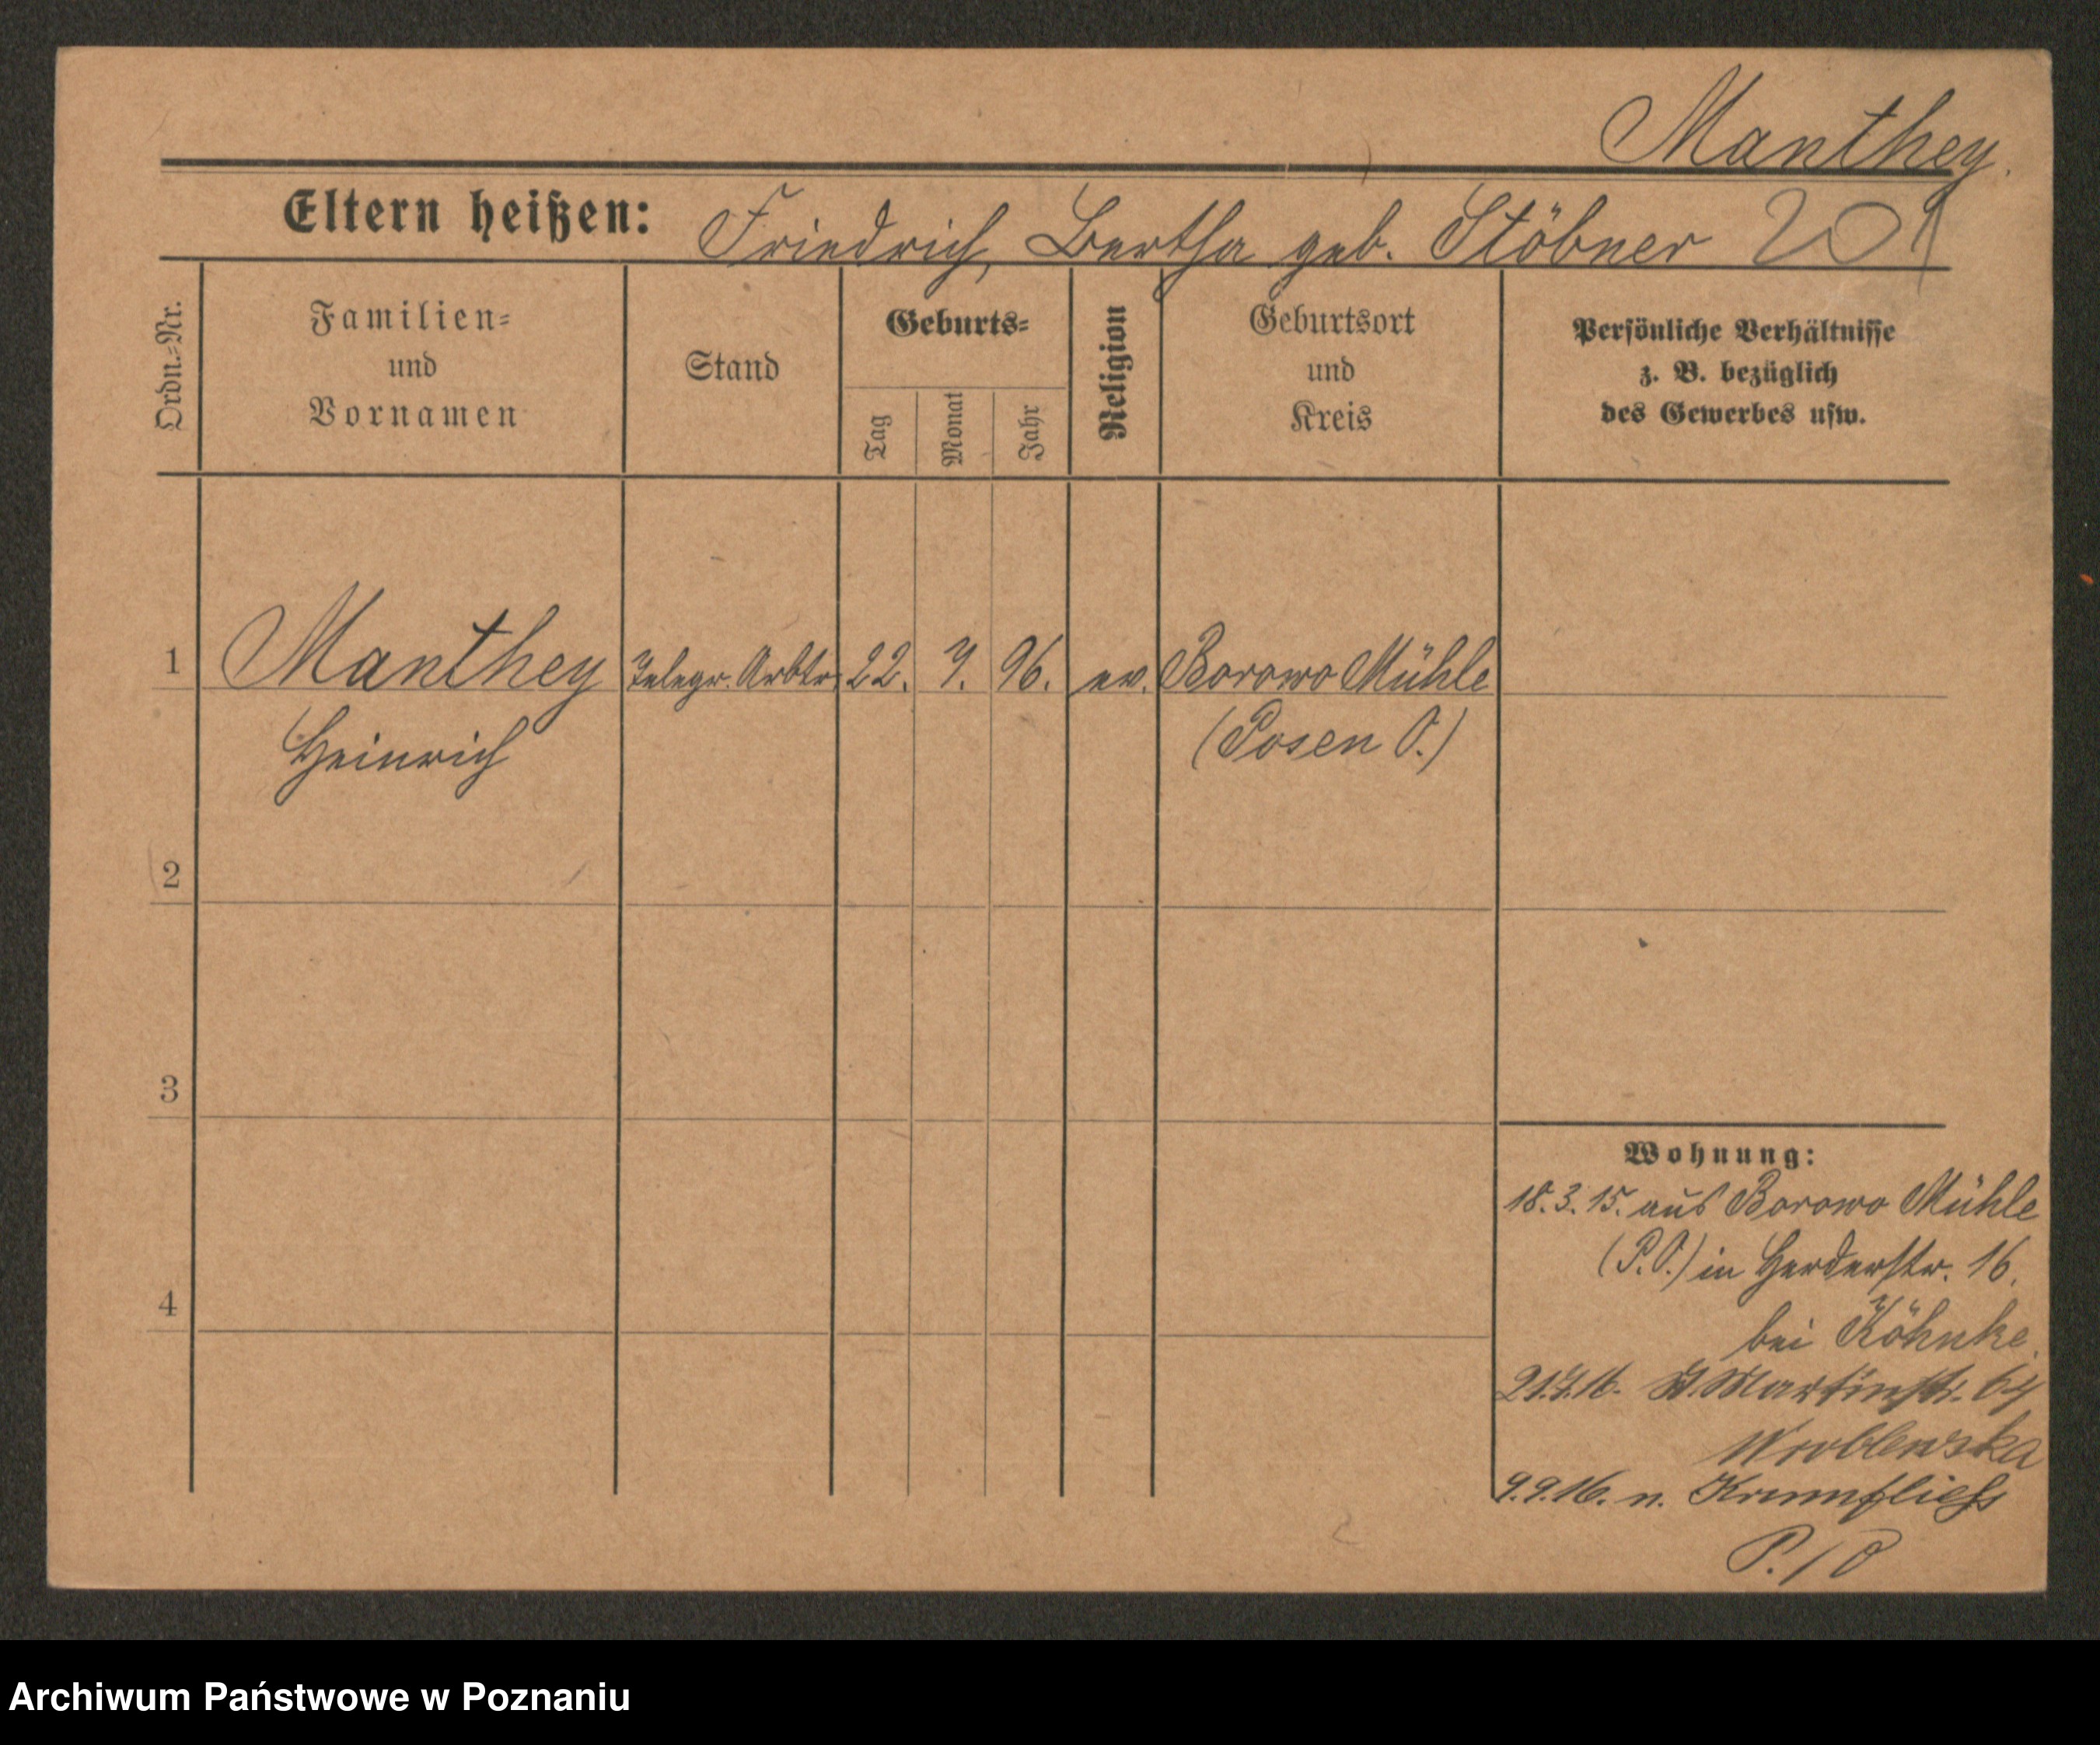 Manthey.
Eltern heißen: Friedrich, Bertha geb. Stöbner 201
Ordn.-Nr.
Familien-
und
Vornamen
Stand
Geburts-
Tag
Monat
Jahr
Religion
Geburtsort
und
Kreis
Persönliche Verhältnisse
z. B. bezüglich
des Gewerbes usw.
1 Manthey Telegr. Arbtr. 22. 7. 96. ev. Borowo Mühle
Heinrich (Posen O.)
2
3
4
Wohnung:
18. 3. 15. aus Borowo Mühle
(P.O.) in Herderstr. 16.
bei Köhnke.
21.7.16. St. Martinstr. 64
Wroblewska
9.9.16. n. Krumfliess
P. / O
Archiwum Państwowe w Poznaniu